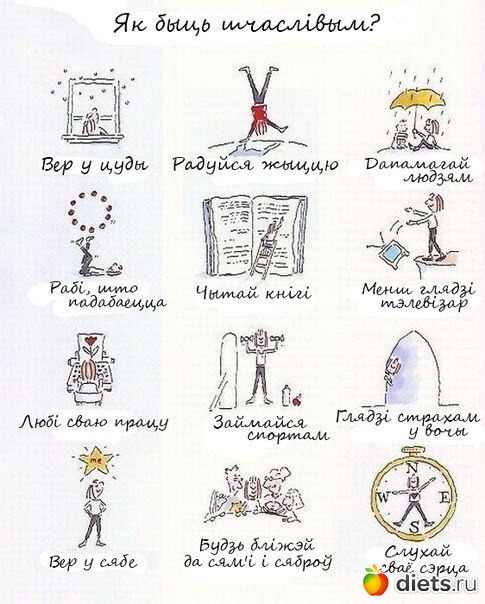 Як быць шчаслівым?
Вер у цуды
Радуйся жыццю
Дапамагай
людзям
Рабі, што
падабаецца
Чытай кнігі
Менш глядзі
тэлевізар
Любі сваю працу
Займайся
спортам
Глядзі страхам
у вочы
me
Вер у сябе
Будзь бліжэй
да сям'і і сяброў
N
W E
S
Слухай
сваё сэрца
diets.ru